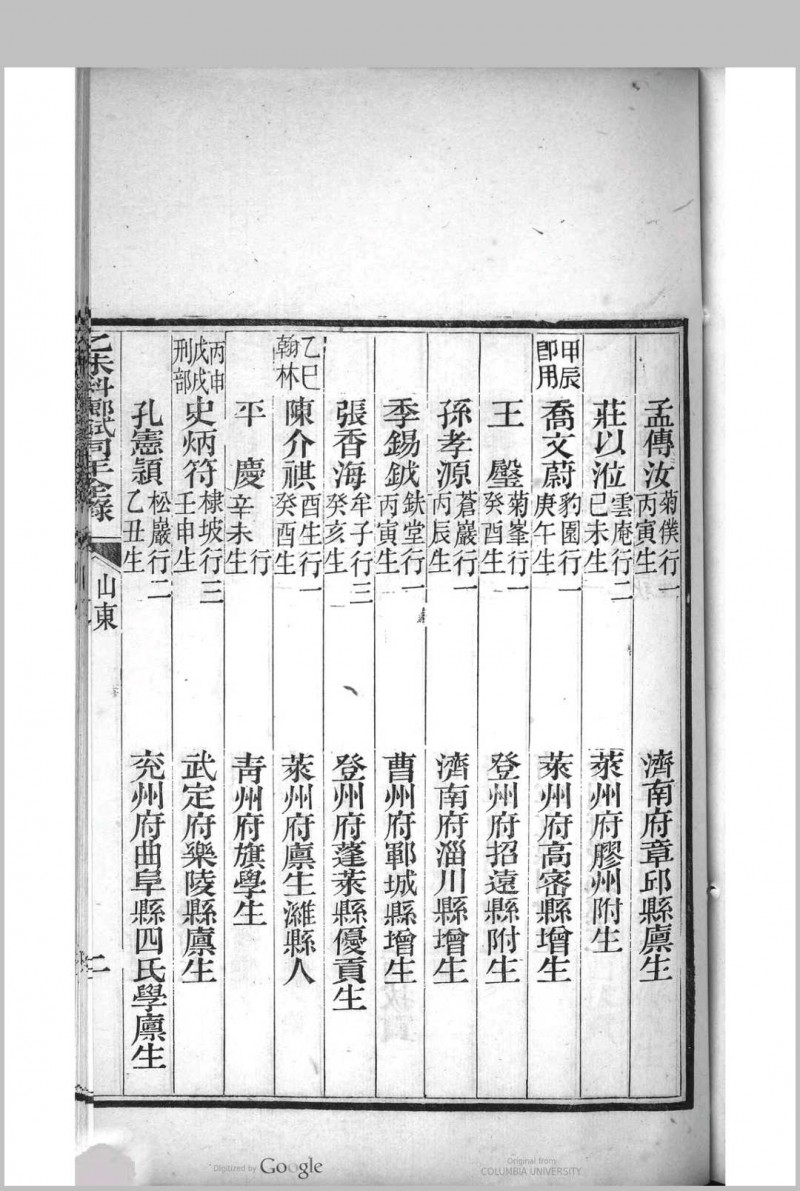 孟傳汶 菊僕行一 丙寅生 濟南府章邱縣廩生
莊以涖 雲庵行二 己未生 萊州府膠州附生
甲辰即用 喬文蔚 豹園行一 庚午生 萊州府高密縣增生
王鑿 菊峯行一 癸酉生 登州府招遠縣附生
孫孝源 蒼巖行一 丙辰生 濟南府淄川縣增生
季錫鉞 鈇堂行一 丙寅生 曹州府鄆城縣增生
張香海 牟子行三 癸亥生 登州府蓬萊縣優貢生
乙巳翰林 陳介祺 酉生行一 癸酉生 萊州府廩生濰縣人
平慶 行 辛未生 青州府旗學生
丙申戊戌刑部 史炳符 棣坡行三 壬申生 武定府樂陵縣廩生
孔憲穎 松巖行二 乙丑生 兖州府曲阜縣四氏學廩生
乙未科鄉試同年全錄 山東 二
Digitized by Google
Original from
COLUMBIA UNIVERSITY